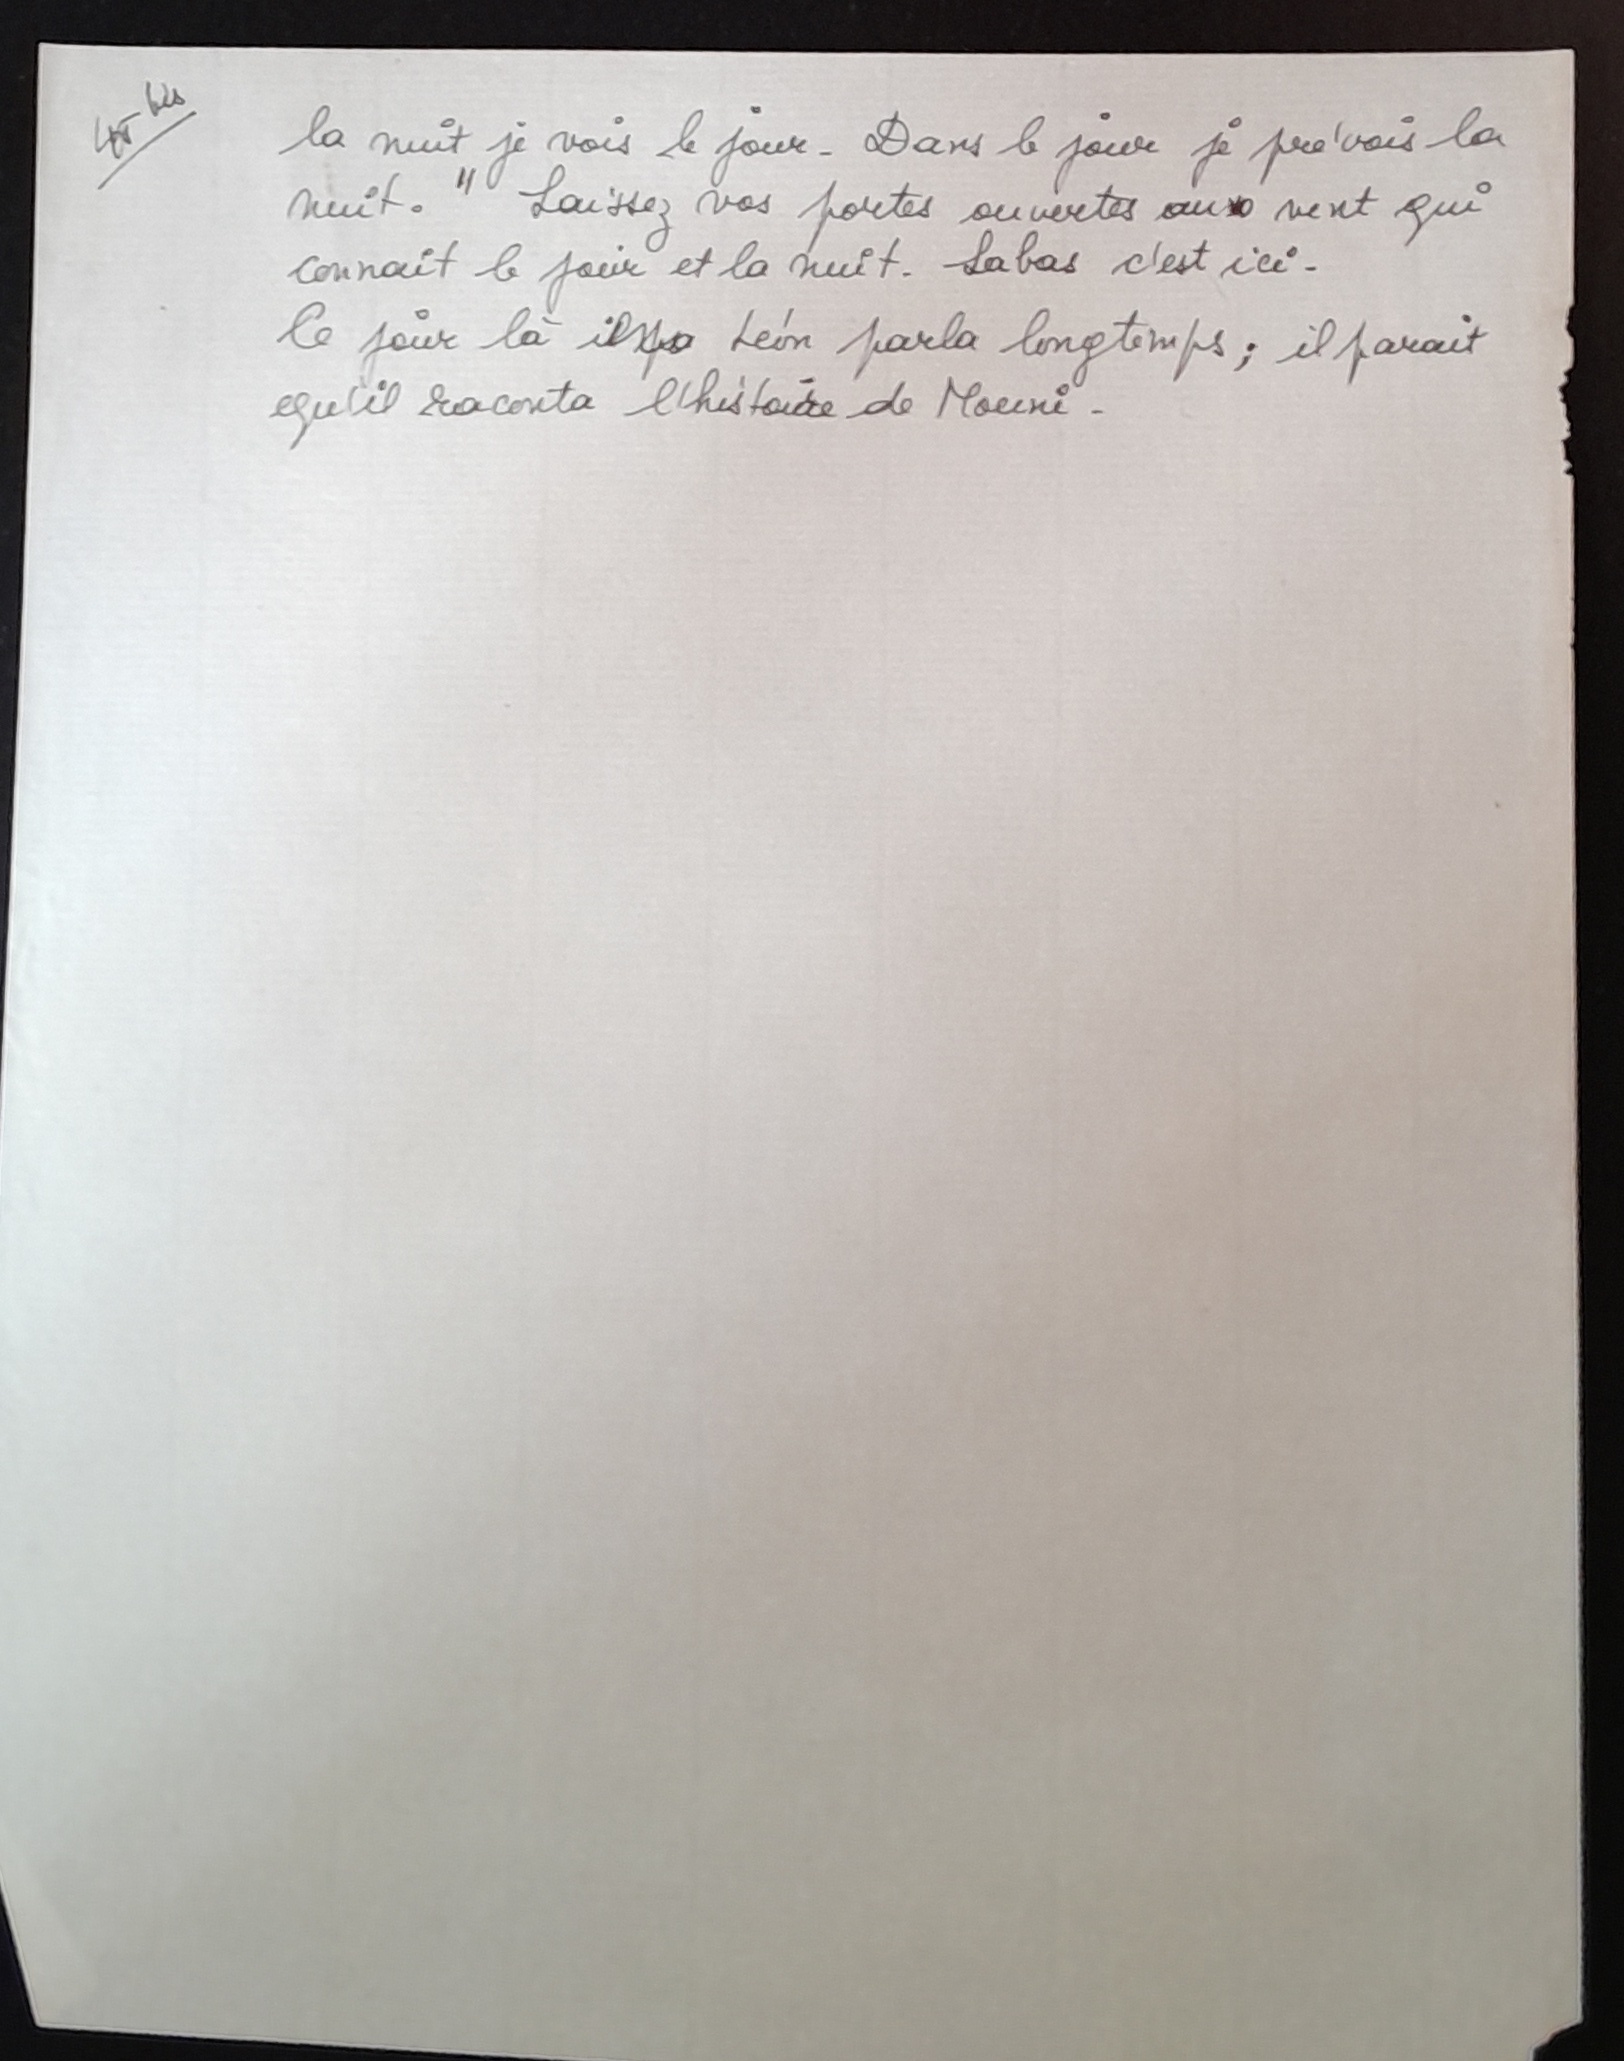 bis
la nuit je vois le jour - Dans le jour je prévois la
nuit. " Laissez vos portes ouvertes au vent qui
connait le jour et la nuit. Labas c'est ici -
Ce jour là il Léon parla longtemps ; il parait
qu'il raconta l'histoire de Mouni -